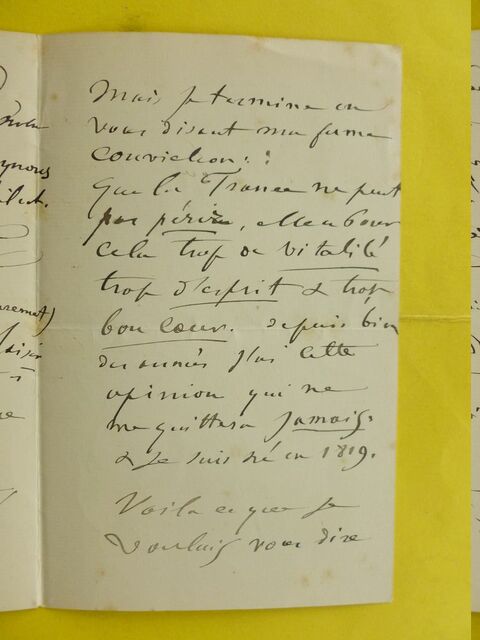 Mais je termine en
vous disant ma ferme
conviction :
Que la France ne peut
pas périr, elle a pour
cela trop de vitalité
trop d'esprit & trop
bon cœur. depuis bien
des années j'ai cette
opinion qui ne
me quittera jamais.
& je suis né en 1819.
Voila ce que je
voulais vous dire